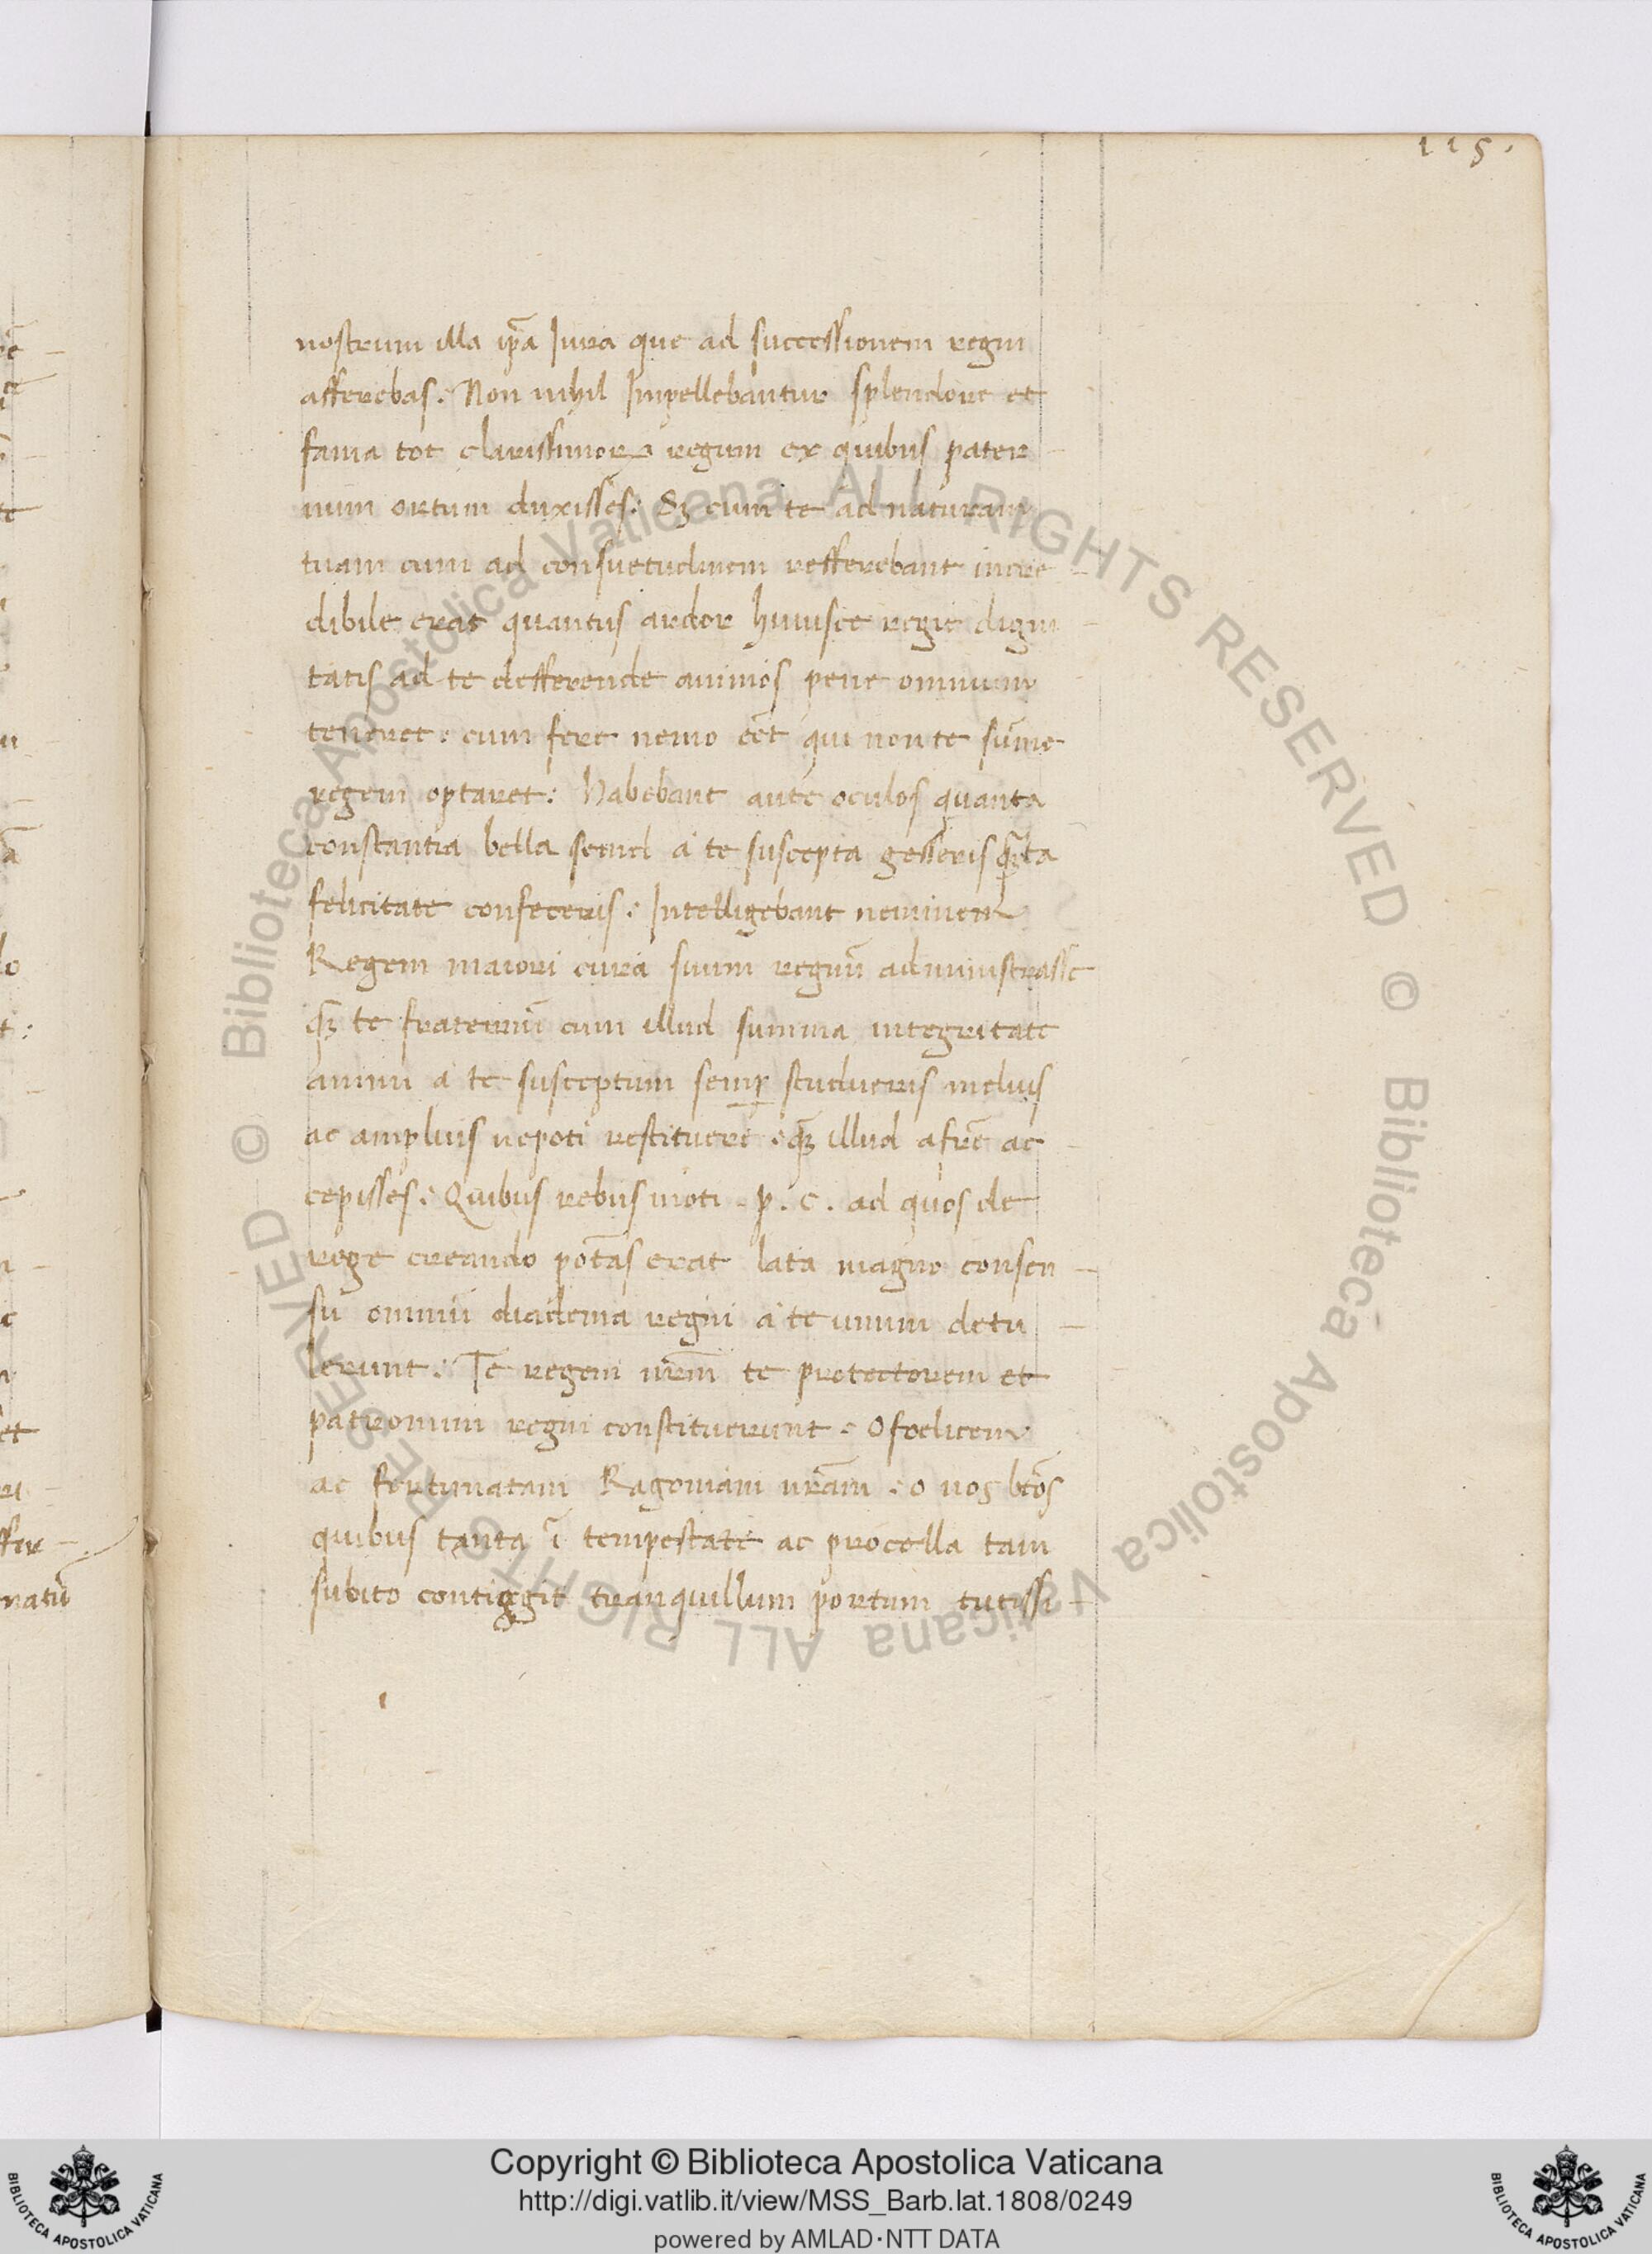 115.
nostrum illa ip̄a Iura que ad successionem regni
afferebas. Non nihil Impellebantur splendore et
fama tot clarissimoꝝ regum ex quibus pater
num ortum duxisses: Sꝫ cum te ad naturam
tuam cum ad consuetudinem refferebant incre
dibile erat quantus ardor huiusce regie digni
tatis ad te defferende animos pene omnium
teneret: cum fere nemo eēt qui non te sūme
regem optaret: Habebant ante oculos quanta
constantia bella semel a te suscepta gesseris q̄ta
felicitate confeceris: Intelligebant neminem
Regem maiori cura suum regnū administrasse
qꝫ te fraternū cum illud summa integritate
animi a te susceptum semꝑ studueris melius
ac amplius nepoti restituere: qꝫ illud a fr̄e ac
cepisses: Quibus rebus moti. p. c. ad quos de
rege creando potās erat lata magno consen
su omniū diadema regni a te unum detu
lerunt: Te regem nr̄m te protectorem et
patronum regni constituerunt: O foelicem
ac fortunatam Ragoniam nr̄am: o nos btōs
quibus tanta ī tempestate ac procella tam
subito contiggit tranquillum portum tutissi
Copyright © Biblioteca Apostolica Vaticana
http://digi.vatlib.it/view/MSS_Barb.lat.1808/0249
powered by AMLAD·NTT DATA
BIBLIOTECA APOSTOLICA VATICANA
BIBLIOTECA APOSTOLICA VATICANA
© Biblioteca Apostolica Vaticana ALL RIGHTS RESERVED © Biblioteca Apostolica Vaticana ALL RIGHTS RESERVED